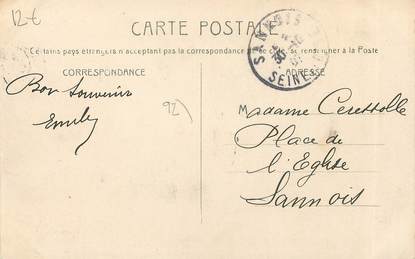 12-€
CARTE POSTALE
Certains pays étrangers n'acceptant pas la correspondance se renseigner à la Poste
CORRESPONDANCE
ADRESSE
SANNOIS
30
SEINE
Bon Souvenir
Emily
92)
Madame
Place de
l'Eglise
Sannois